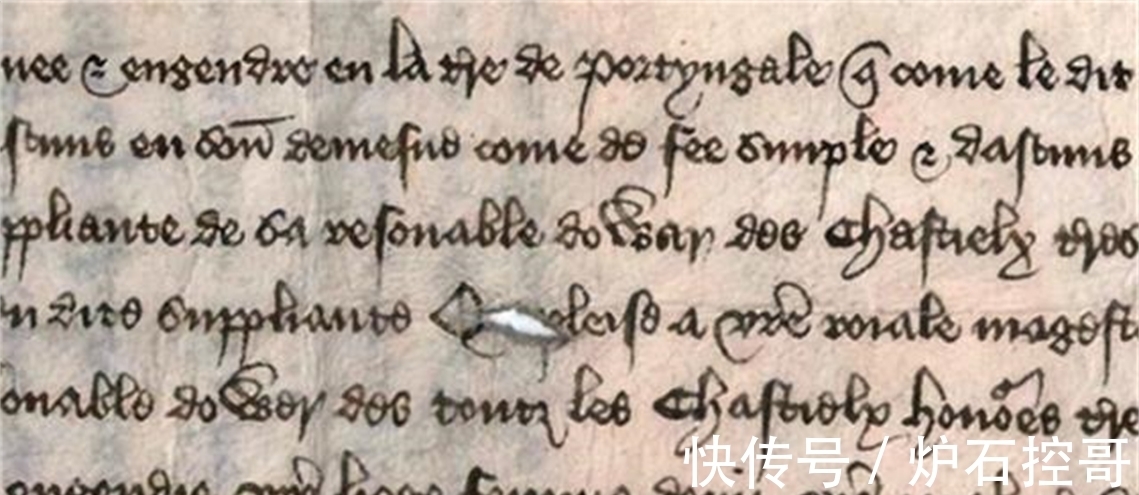 nee & engendre en la tre de portyngale q come le dit
en son demesne come de fee simple & dastuns
ppliante de sa resonable dowar des Chastielx tres
dite suppliante pleise a vre roiale magest
onable dower des toutz les Chastielx honors tre
vre liege
快传号 / 炉石控哥